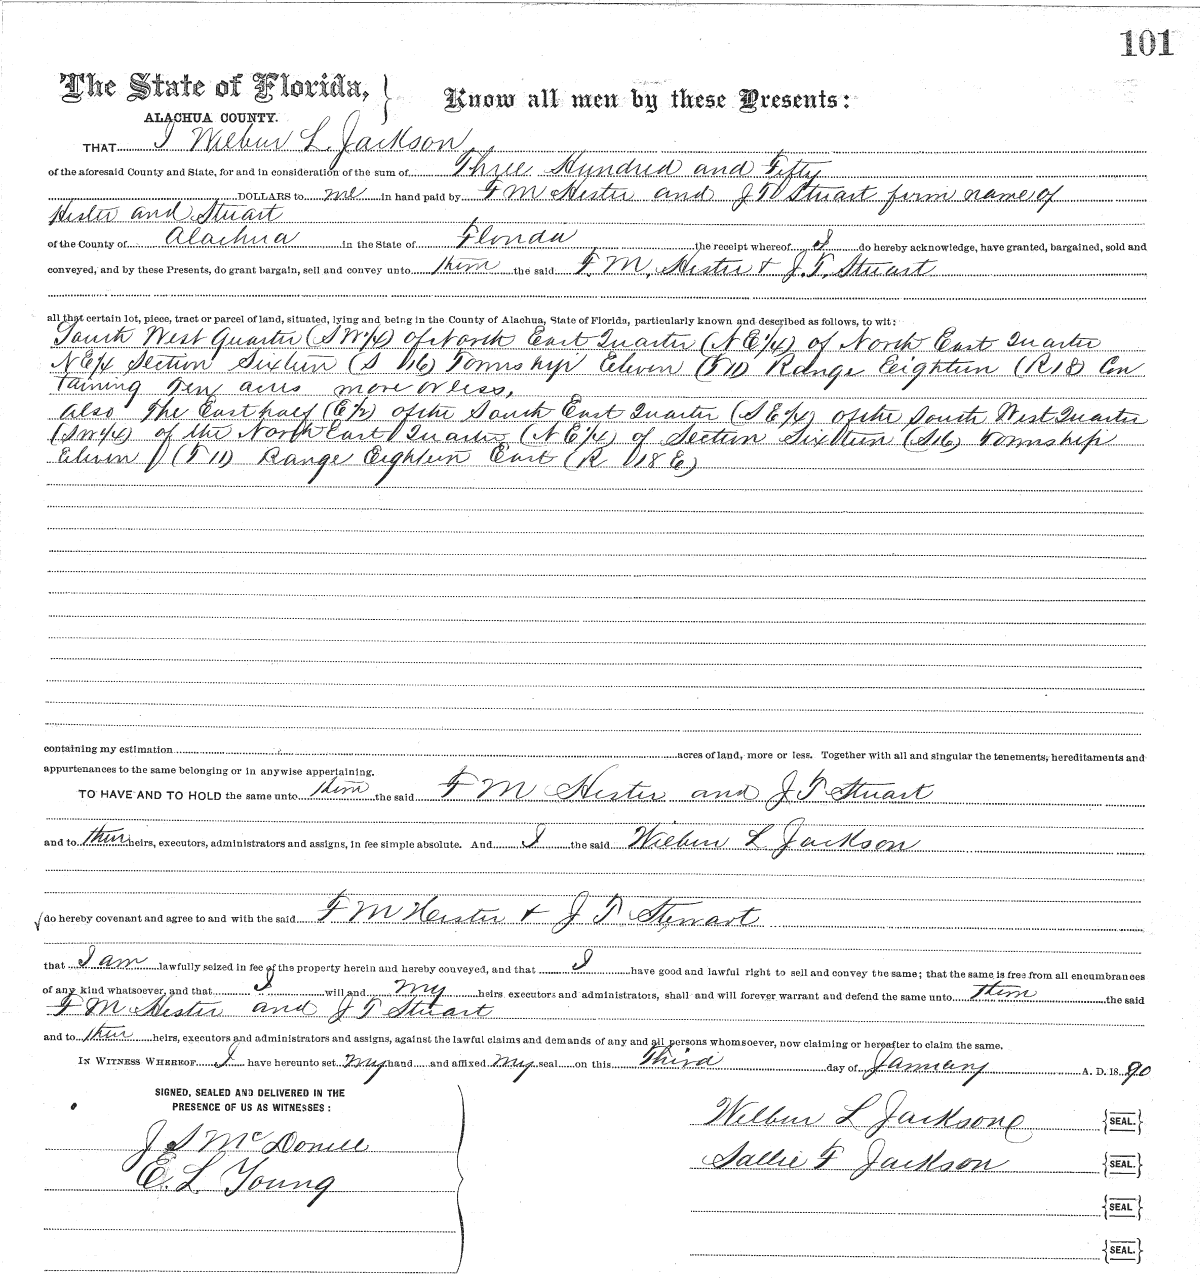 101
The State of Florida, } Know all men by these Presents:
ALACHUA COUNTY.
THAT I Wilbur L. Jackson
of the aforesaid County and State, for and in consideration of the sum of Three Hundred and Fifty
DOLLARS to me in hand paid by F M Hester and J T Stuart firm name of
Hester and Stuart
of the County of Alachua in the State of Florida the receipt whereof I do hereby acknowledge, have granted, bargained, sold and
conveyed, and by these Presents, do grant bargain, sell and convey unto them the said F. M. Hester & J. T. Stuart
all that certain lot, piece, tract or parcel of land, situated, lying and being in the County of Alachua, State of Florida, particularly known and described as follows, to wit:
South West Quarter (SW¼) of North East Quarter (NE¼) of North East Quarter
NE¼ Section Sixteen (S 16) Township Eleven (T11) Range Eighteen (R18) Con
taining Ten acres more or less,
Also The East half (E½) of the South East Quarter (SE¼) of the South West Quarter
(SW¼) of the North East Quarter (NE¼) of Section Sixteen (S16) Township
Eleven (T11) Range Eighteen East (R 18 E)
containing my estimation acres of land, more or less. Together with all and singular the tenements; hereditaments and
appurtenances to the same belonging or in anywise appertaining.
TO HAVE AND TO HOLD the same unto them the said F M Hester and J T Stuart
and to their heirs, executors, administrators and assigns, in fee simple absolute. And I the said Wilbur L Jackson
do hereby covenant and agree to and with the said F M Hester & J T Stewart
that I am lawfully seized in fee of the property herein and hereby conveyed, and that I have good and lawful right to sell and convey the same; that the same is free from all encumbrances
of any kind whatsoever, and that I will and my heirs executors and administrators, shall and will forever warrant and defend the same unto them the said
F M Hester and J T Stuart
and to their heirs, executors and administrators and assigns, against the lawful claims and demands of any and all persons whomsoever, now claiming or hereafter to claim the same.
IN WITNESS WHEREOF I have hereunto set my hand and affixed my seal on this Third day of January A. D. 18 90
SIGNED, SEALED AND DELIVERED IN THE
PRESENCE OF US AS WITNESSES:
J S McDonell
E. L Young
Wilbur L Jackson {SEAL.}
Sallie F Jackson {SEAL.}
{SEAL}
{SEAL.}